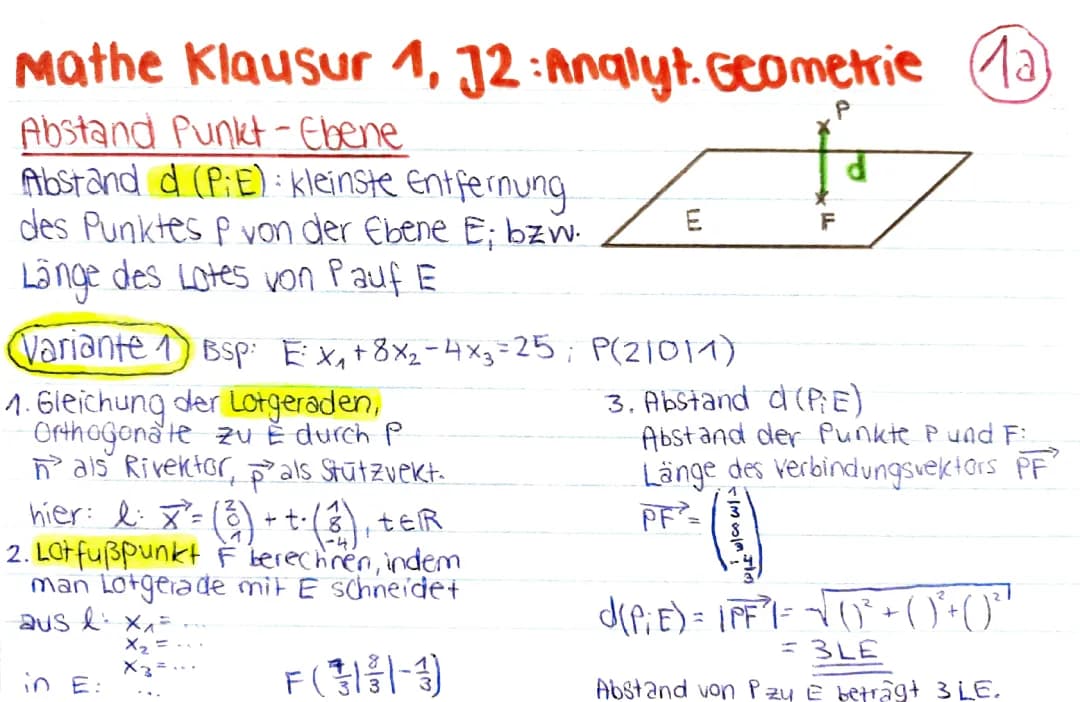 Mathe Klausur 1, J2: Analyt. Geometrie
1a
Abstand Punkt-Ebene
Abstand d (P;E): kleinste Entfernung
des Punktes P von der Ebene E; bzw.
Länge des Lotes von P auf E
P
d
E
F
Variante 1 BSP: E: x₁ + 8x₂ - 4x₃ = 25 ; P(2|0|1)
1. Gleichung der Lotgeraden,
Orthogonale zu E durch P
n→ als Rivektor, p→ als Stützvekt.
hier: l: x→ = (2 0 1) + t · (1 8 -4), t∈ℝ
2. Lotfußpunkt F berechnen, indem
man Lotgerade mit E schneidet
aus l: x₁ = ...
x₂ = ...
x₃ = ...
in E: ...
F (7/3 | 8/3 | -1/3)
3. Abstand d (P;E)
Abstand der Punkte P und F:
Länge des Verbindungsvektors PF→
PF→ = (1/3 8/3 -4/3)
d(P;E) = |PF→| = √()² + ()² + ()²
= 3 LE
Abstand von P zu E beträgt 3 LE.